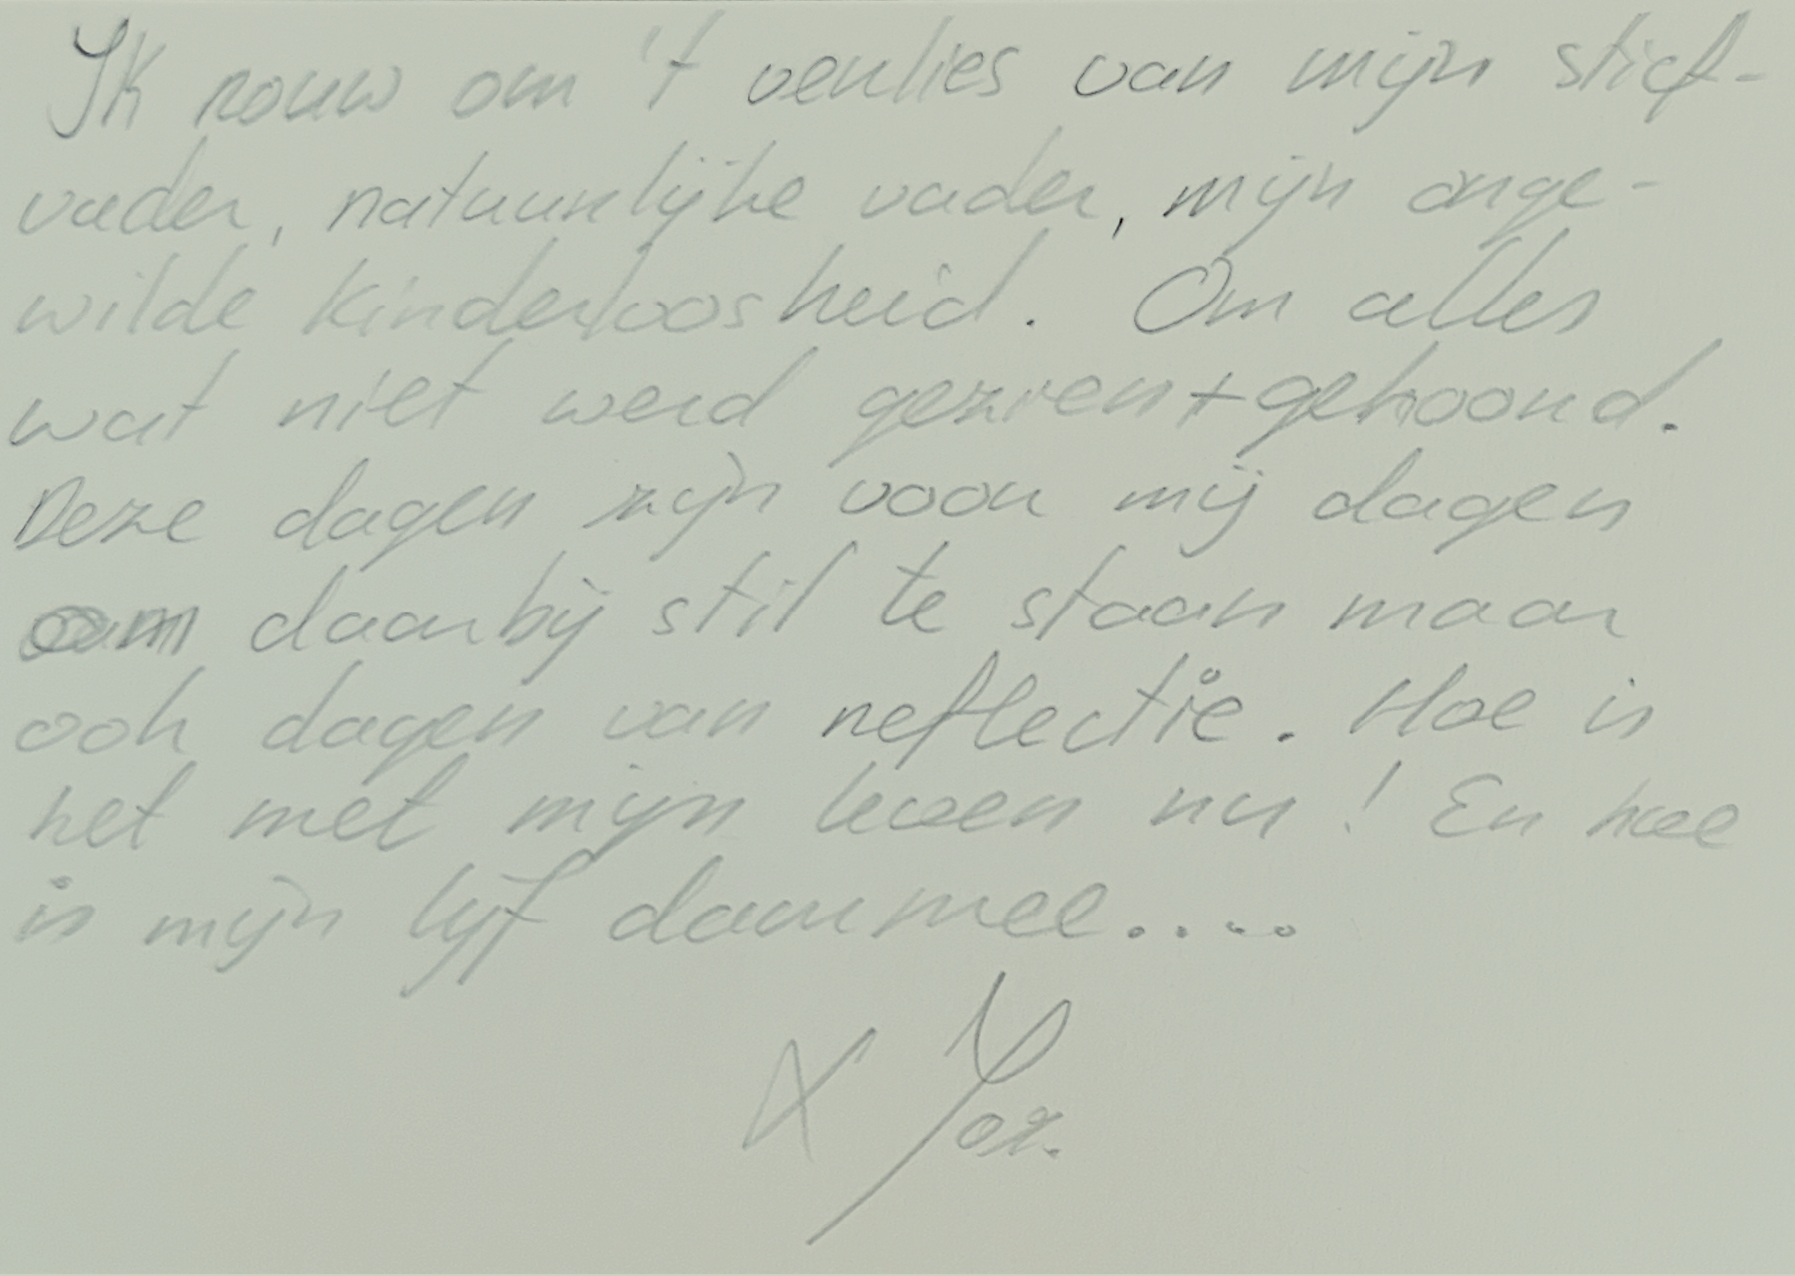 Ik rouw om 't verlies van mijn stief-
vader, natuurlijke vader, mijn onge-
wilde kinderloosheid. Om alles
wat niet werd gezien + gehoord.
Deze dagen zijn voor mij dagen
om daarbij stil te staan maar
ook dagen van reflectie. Hoe is
het met mijn leven nu! En hoe
is mijn lijf daarmee.....
X